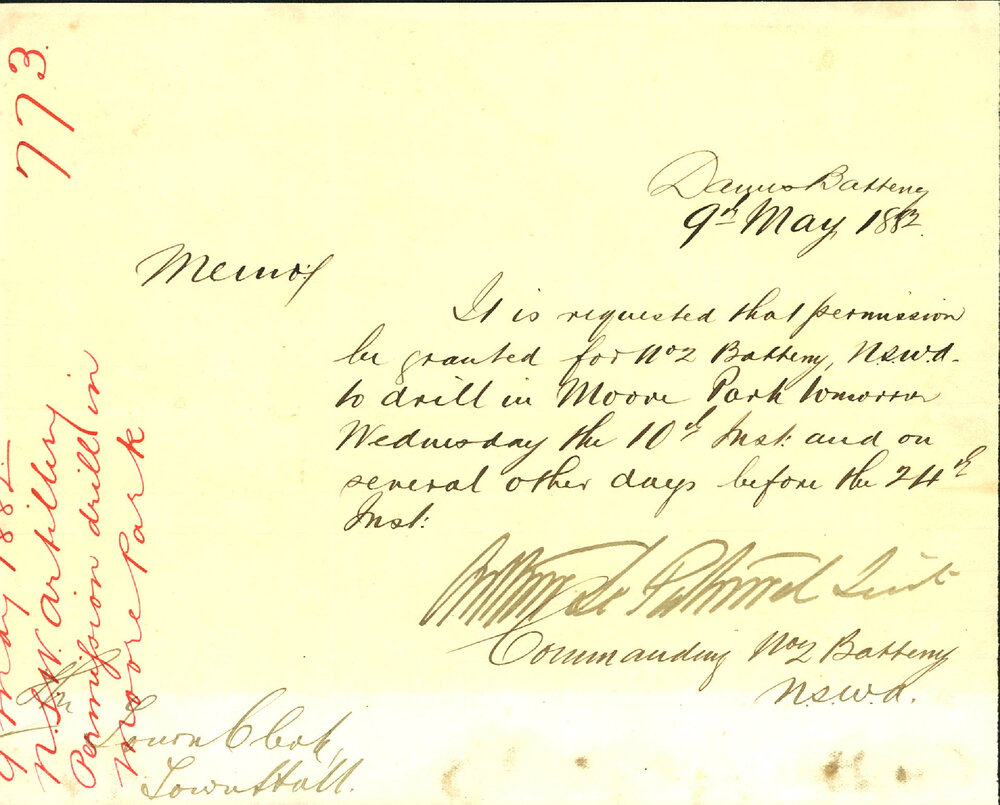 773.
Dawes Battery
9th May 1882.
Memo:
It is requested that permission
be granted for No 2 Battery, N.S.W.A.
to drill in Moore Park tomorrow
Wednesday the 10th Inst: and on
several other days before the 24th
Inst:
Lieut
Commanding No 2 Battery
N.S.W.A.
The
Town Clerk,
Town Hall.
9 May 1882
N.S.W. Artillery
Permission drill in
Moore Park